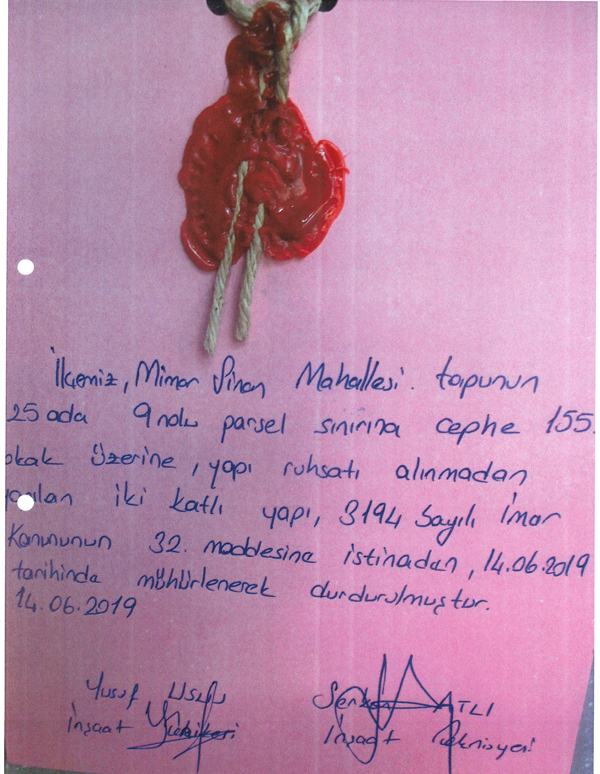 İlçemiz, Mimar Sinan Mahallesi. tapunun
25 ada 9 nolu parsel sınırına cephe 155.
okak üzerine, yapı ruhsatı alınmadan
yapılan iki katlı yapı, 3194 Sayılı İmar
Kanununun 32. maddesine istinaden, 14.06.2019
tarihinde mühürlenerek durdurulmuştur.
14.06.2019
Yusuf
Serkan ATLI
İnşaat
İnşaat Teknisyeni